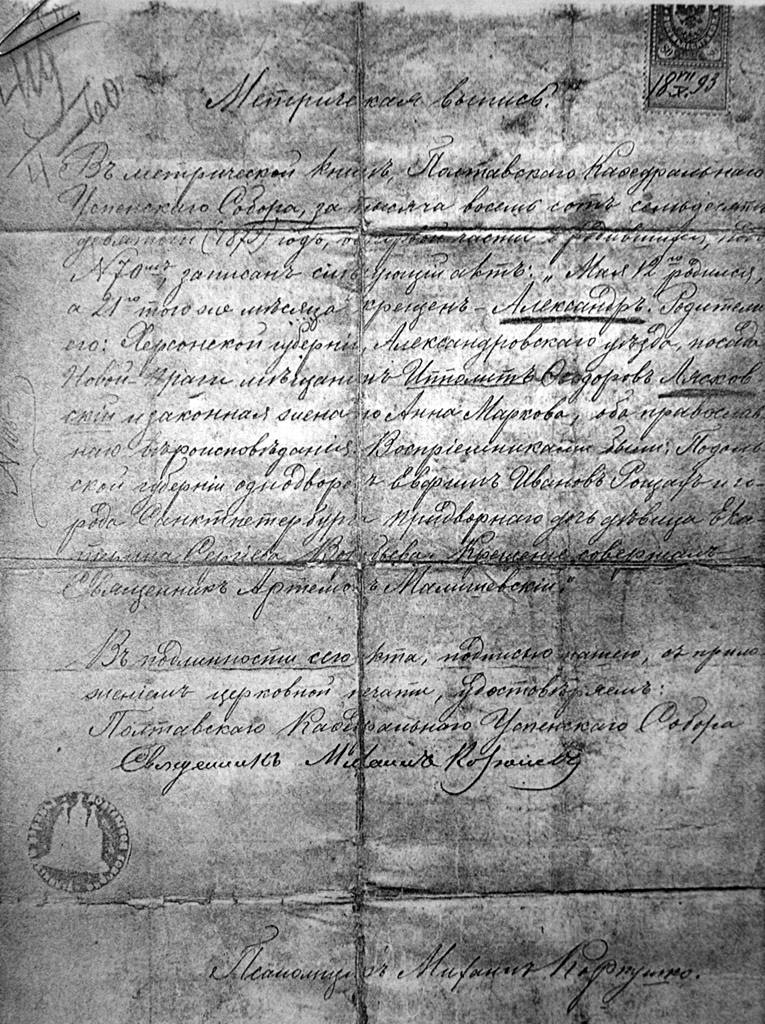 Метрическая выпись.
18 VII/X 93
Въ метрической книгѣ, Полтавскаго Каѳедральнаго
Успенскаго Собора, за тысяча восемь сотъ семьдесятъ
девятый годъ, первой части о родившихся, подъ
N 70мъ, записанъ слѣдующій актъ: „Мая 12го родился,
а 21го того же мѣсяца крещенъ – Александръ. Родители
его: Херсонской губерніи, Александровскаго уѣзда, посада
Новой-Праги мѣщанинъ Ипполитъ Ѳеодоровъ Лясков-
скій и законная жена его Анна Маркова, оба православ-
наго вѣроисповѣданія. Воспріемниками были: Подоль-
ской губерніи однодворецъ Евфимъ Ивановъ Рощак и го-
рода Санктпетербурга придворнаго дочь дѣвица Ека-
терина Сергѣева Крещеніе совершалъ
Священникъ Артемонъ Малишевскій."
Въ подлинности сего акта, подписью нашею, съ прило-
женіемъ церковной печати, удостовѣряемъ:
Полтавскаго Каѳедральнаго Успенскаго Собора
Священникъ Михаилъ
Псаломщикъ Михаилъ Корпушко.